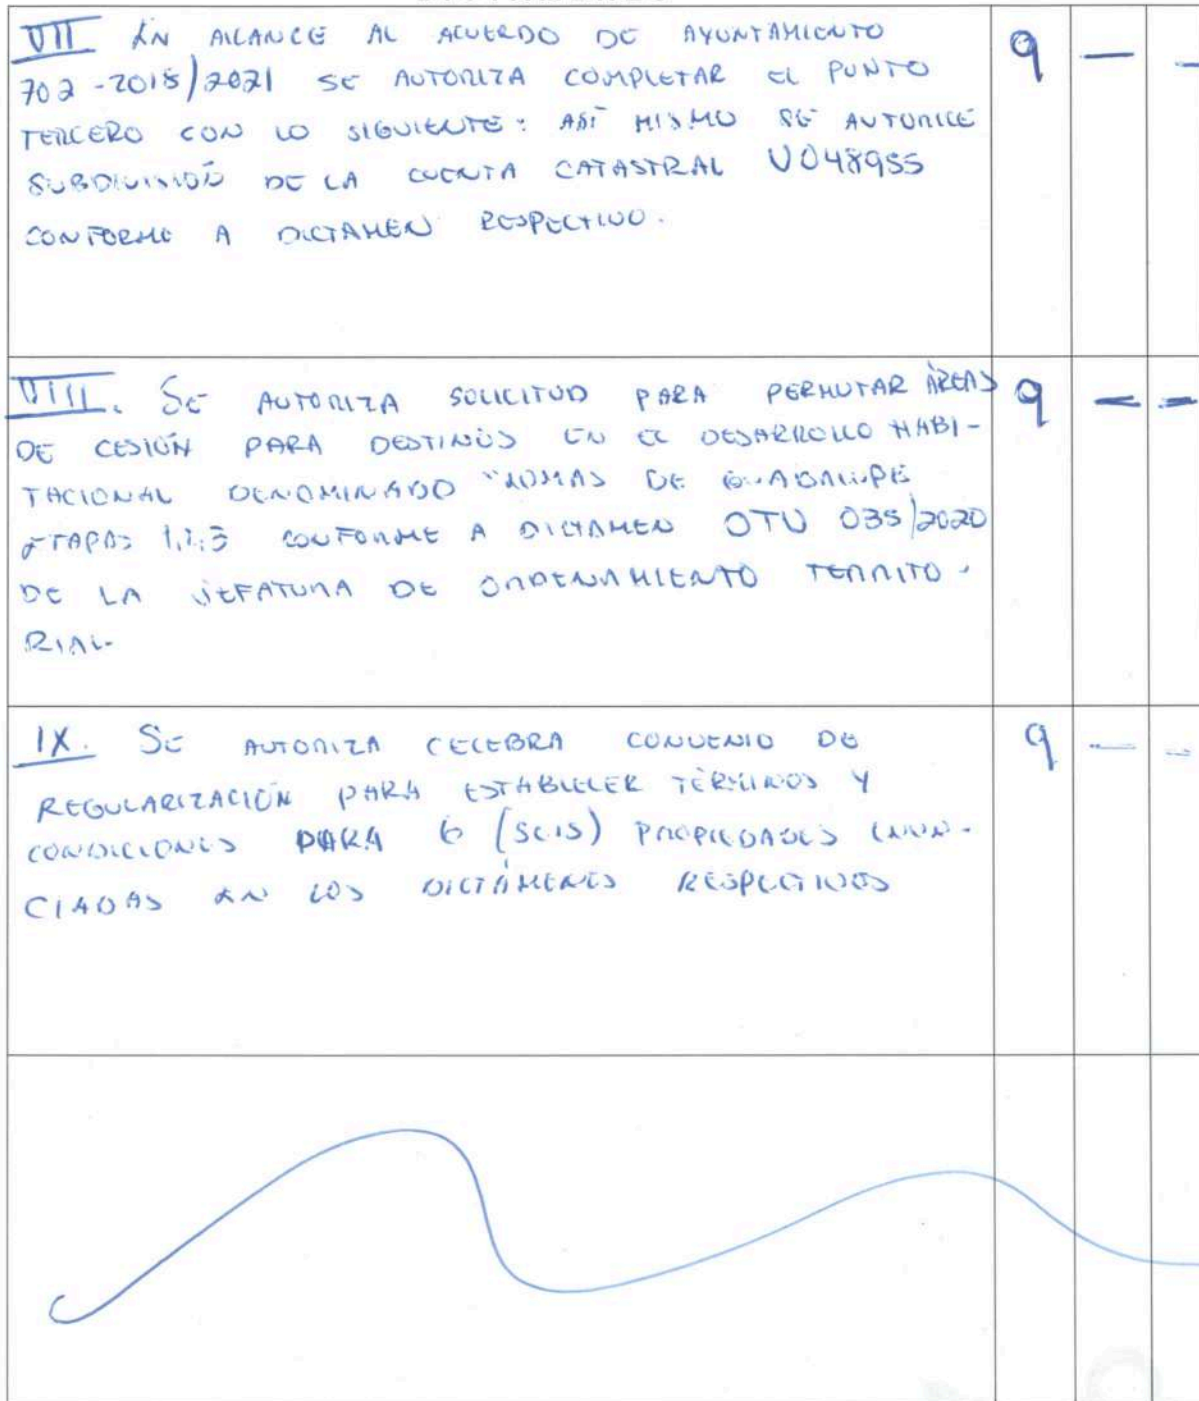 VII EN ALCANCE AL ACUERDO DE AYUNTAMIENTO 9 — —
702-2018/2021 SE AUTORIZA COMPLETAR EL PUNTO
TERCERO CON LO SIGUIENTE: ASÍ MISMO SE AUTORICE
SUBDIVISIÓN DE LA CUENTA CATASTRAL U048955
CONFORME A DICTAMEN RESPECTIVO.
VIII. SE AUTORIZA SOLICITUD PARA PERMUTAR ÁREAS 9 — —
DE CESIÓN PARA DESTINOS EN EL DESARROLLO HABI-
TACIONAL DENOMINADO "LOMAS DE GUADALUPE
ETAPAS 1,2,3 CONFORME A DICTAMEN OTU 035/2020
DE LA JEFATURA DE ORDENAMIENTO TERRITO-
RIAL-
IX. SE AUTORIZA CELEBRA CONVENIO DE 9 — —
REGULARIZACIÓN PARA ESTABLECER TÉRMINOS Y
CONDICIONES PARA 6 (SEIS) PROPIEDADES ENUN-
CIADAS EN LOS DICTÁMENES RESPECTIVOS